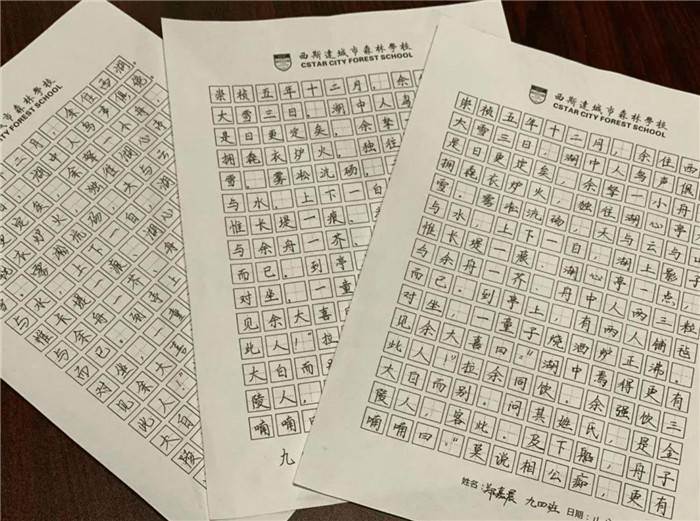 斯達城市森林學校
CITY FOREST SCHOOL
二月，余住西湖。
湖中人鸟声俱绝
定矣，余拏一小舟，
炉火，独往湖心亭
雾凇沆砀，天与云
与水，上下一白，湖
惟长堤一痕、湖心
与余舟一芥、舟
而已。到亭上
对坐，一童
见余大喜
此人！”
大白
陵
西斯達城市森林學校
CSTAR CITY FOREST SCHOOL
崇祯五年十二月，余
大雪三日，湖中人鸟
是日更定矣，余拏
拥毳衣炉火，独往
雪。雾凇沆砀，
与水，上下一白
惟长堤一痕、
与余舟一芥、
而已。到亭
对坐，一童
见余大喜
此人！”拉
大白而
陵人，
喃喃
九
西斯達城市森林學校
CSTAR CITY FOREST SCHOOL
崇祯五年十二月，余住西
大雪三日，湖中人鸟声俱
是日更定矣，余拏一小舟
拥毳衣炉火，独往湖心亭
雪。雾凇沆砀，天与云与山
与水，上下一白，湖上影子
惟长堤一痕、湖心亭一点，
与余舟一芥、舟中人两三粒
而已。到亭上，有两人铺毡
对坐，一童子烧酒炉正沸。
见余大喜曰：“湖中焉得更有
此人！”拉余同饮。余强饮三
大白而别。问其姓氏，是金
陵人，客此。及下船，舟子
喃喃曰：“莫说相公痴，更有
姓名：郑嘉晨 九四班 日期：